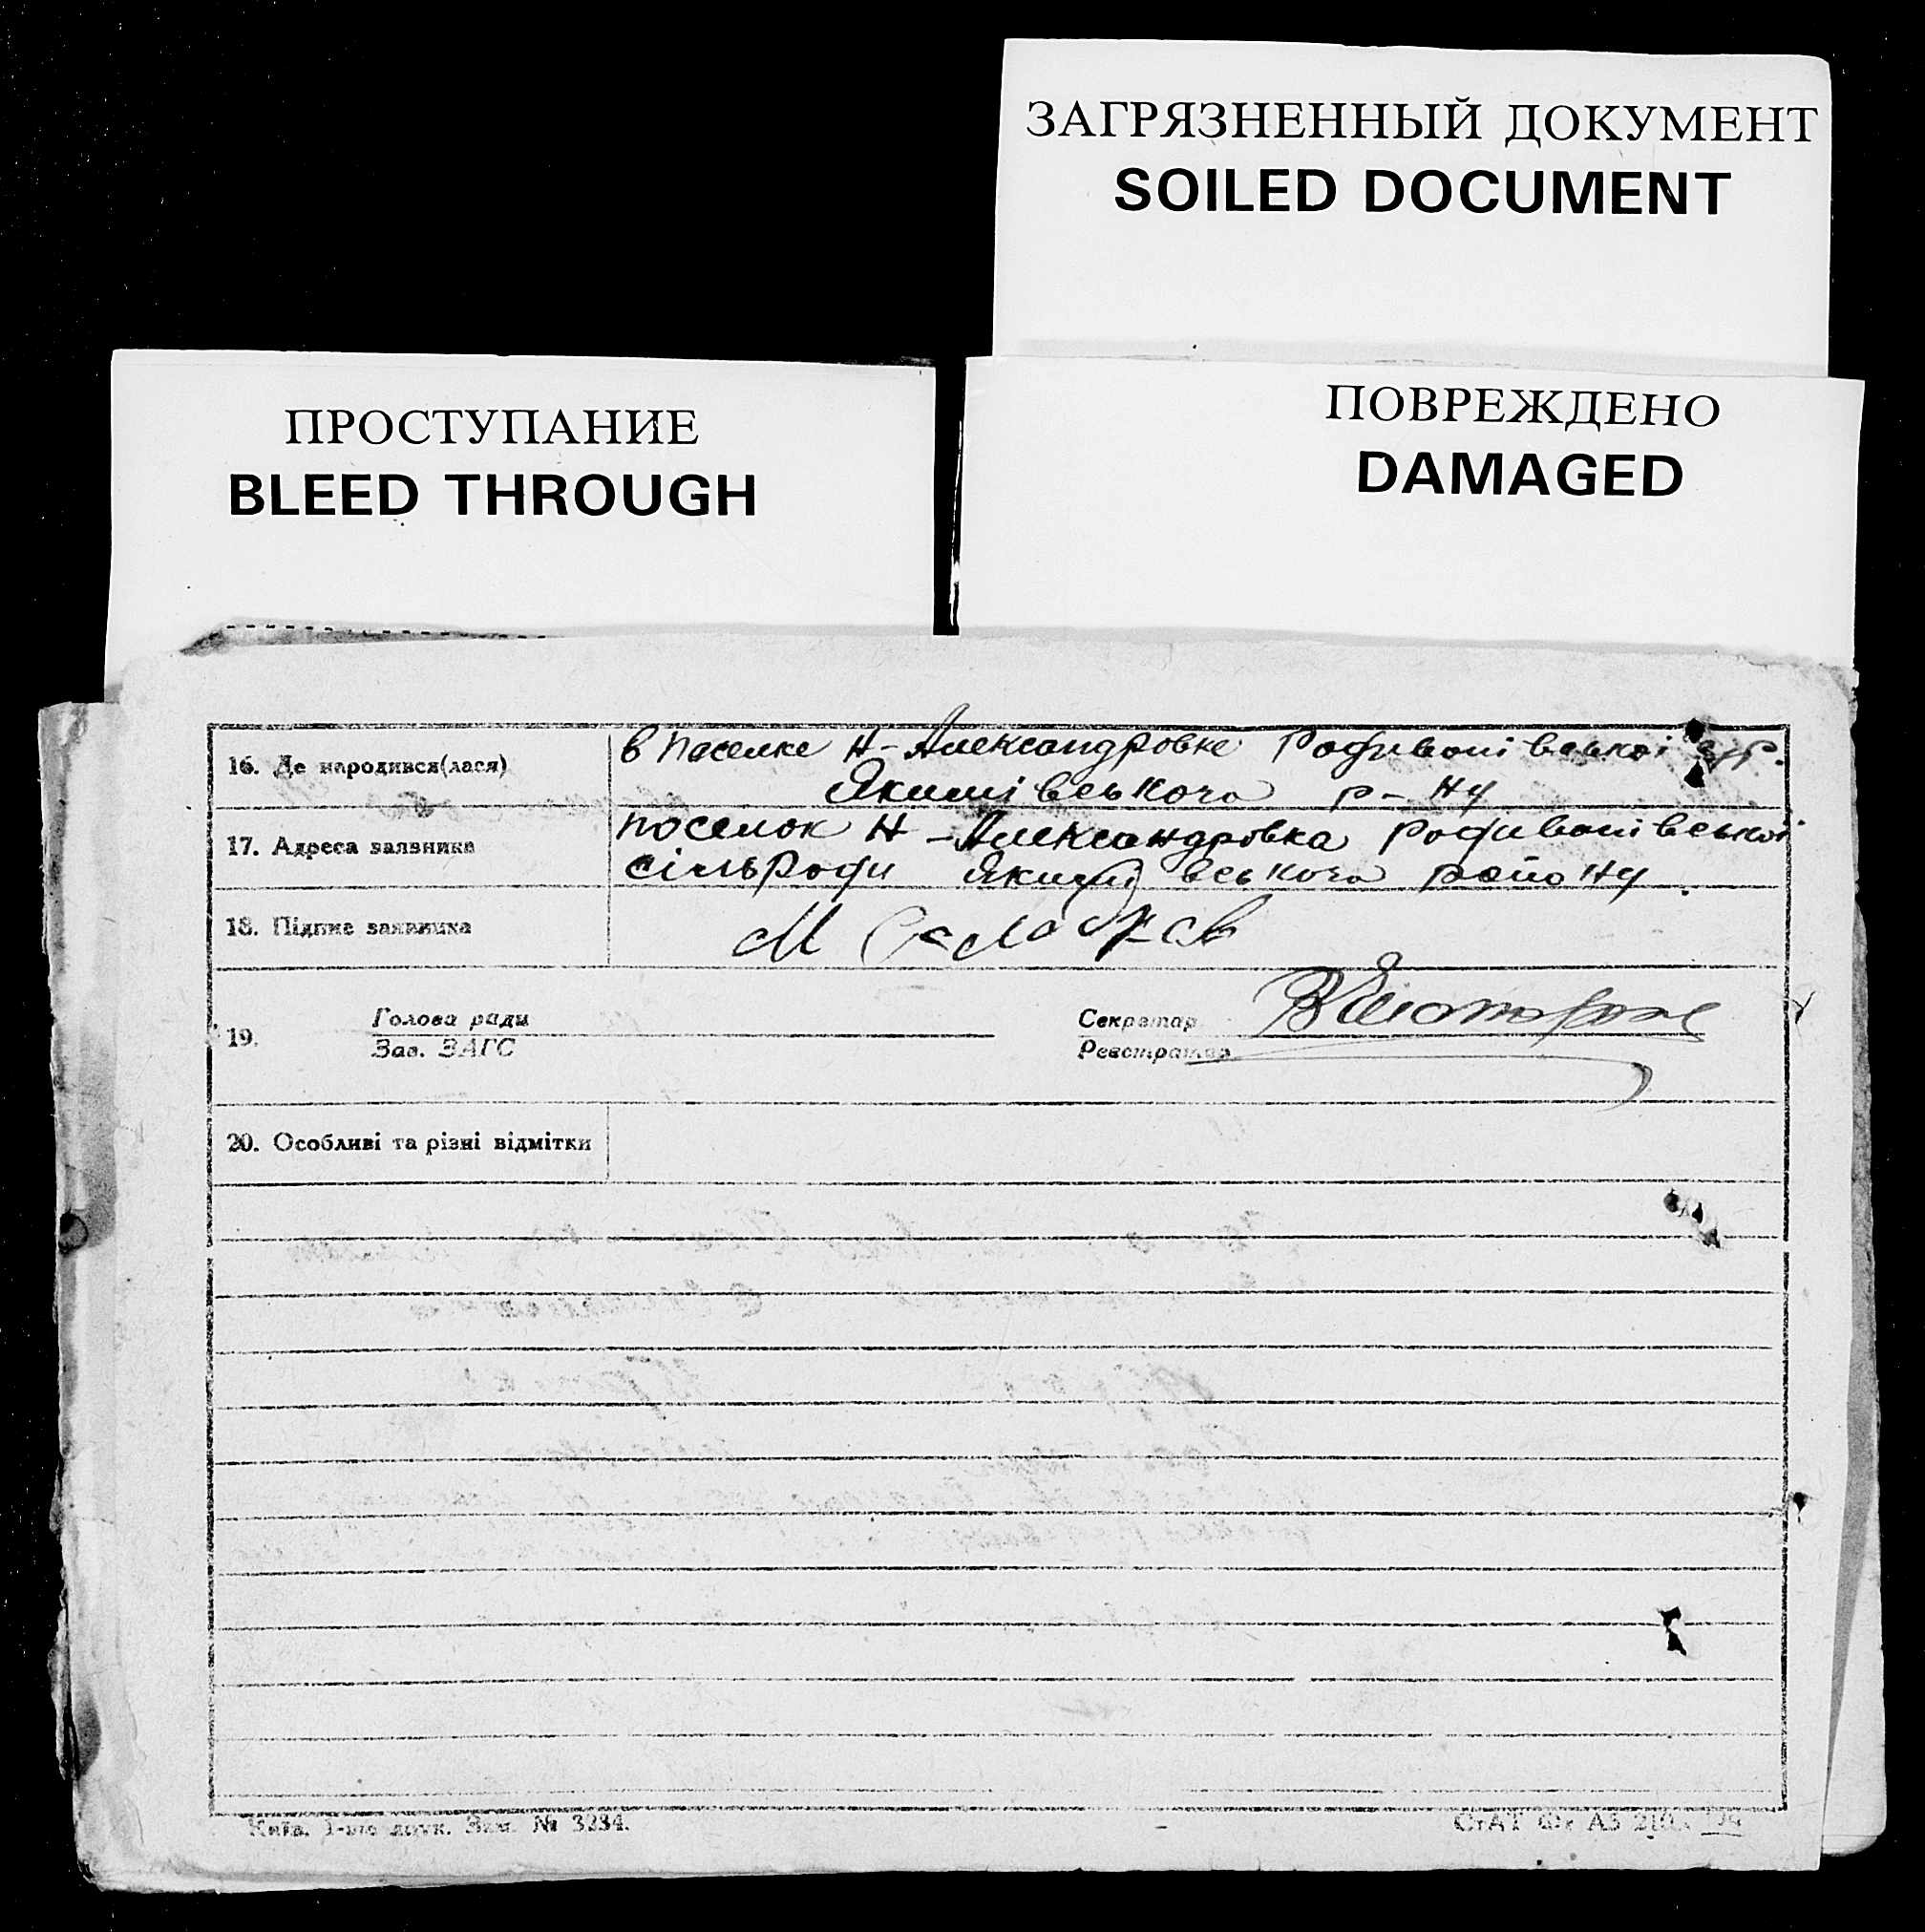 ЗАГРЯЗНЕННЫЙ ДОКУМЕНТ
SOILED DOCUMENT
ПРОСТУПАНИЕ
BLEED THROUGH
ПОВРЕЖДЕНО
DAMAGED
16. Де народився(лася)
в поселке Н-Александровке Радивонівської
Якимівського р-ну
17. Адреса заявника
поселок Н-Александровка Радивонівської
сільради Якимівського району.
18. Підпис заявника
М
19.
Голова ради
Зав. ЗАГС
Секретар
Реєстратор
20. Особливі та різні відмітки
Київ. 1-ша друк. Зам. № 3234.
СтАТ Ф. А5 210